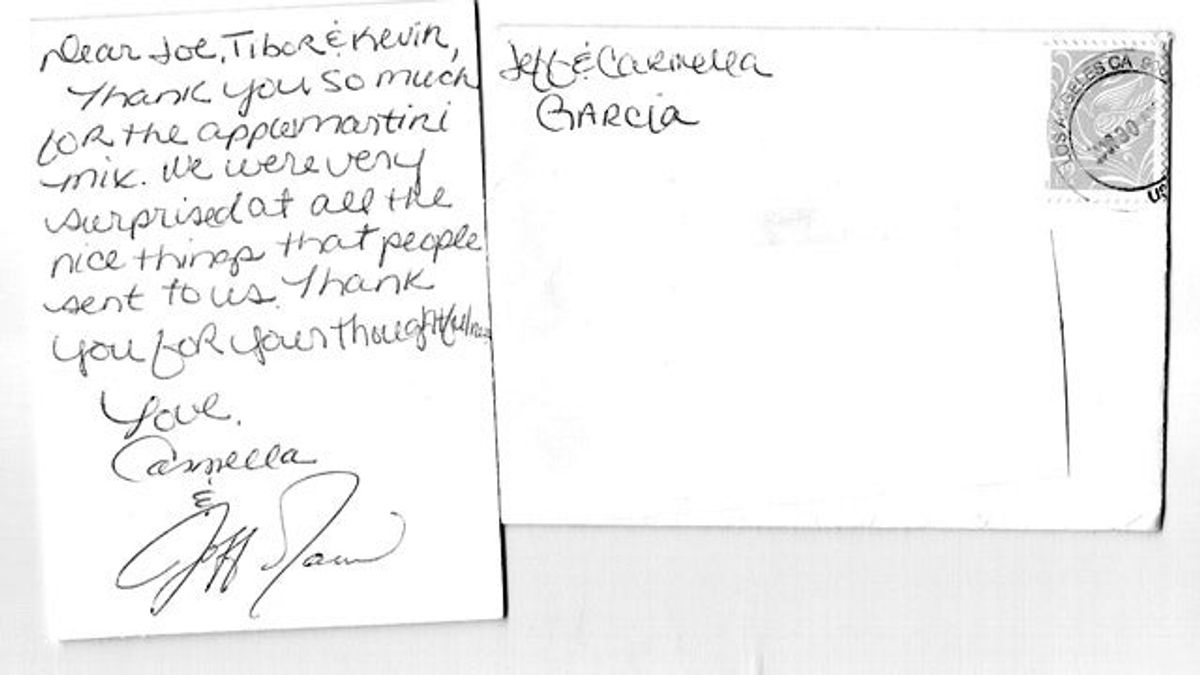 Dear Joe, Tibor & Kevin,
Thank you so much
for the applemartini
mix. We were very
surprised at all the
nice things that people
sent to us. Thank
you for your thoughtfulness
Love,
Carmella
&
Jeff Garcia
Jeff & Carmella
Garcia
LOS ANGELES CA 900